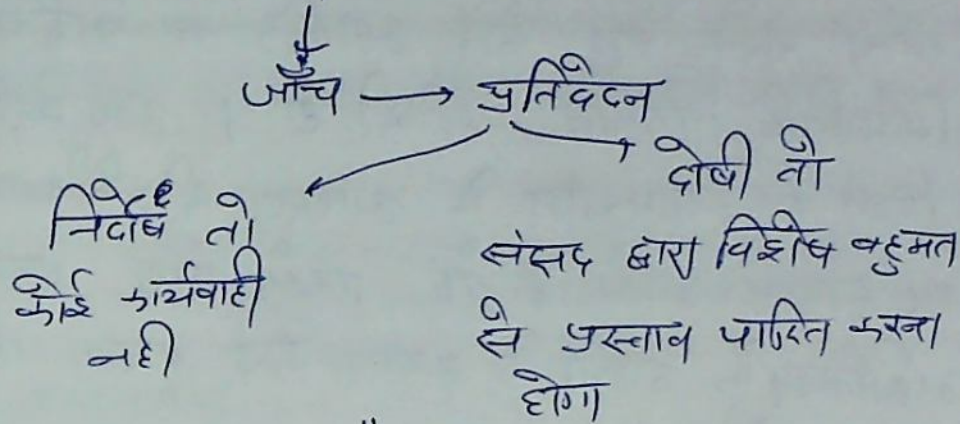 जाँच → प्रतिवेदन
निर्दोष तो
कोई कार्यवाही
नही
दोषी तो
संसद द्वारा विशेष बहुमत
से प्रस्ताव पारित करना
होगा